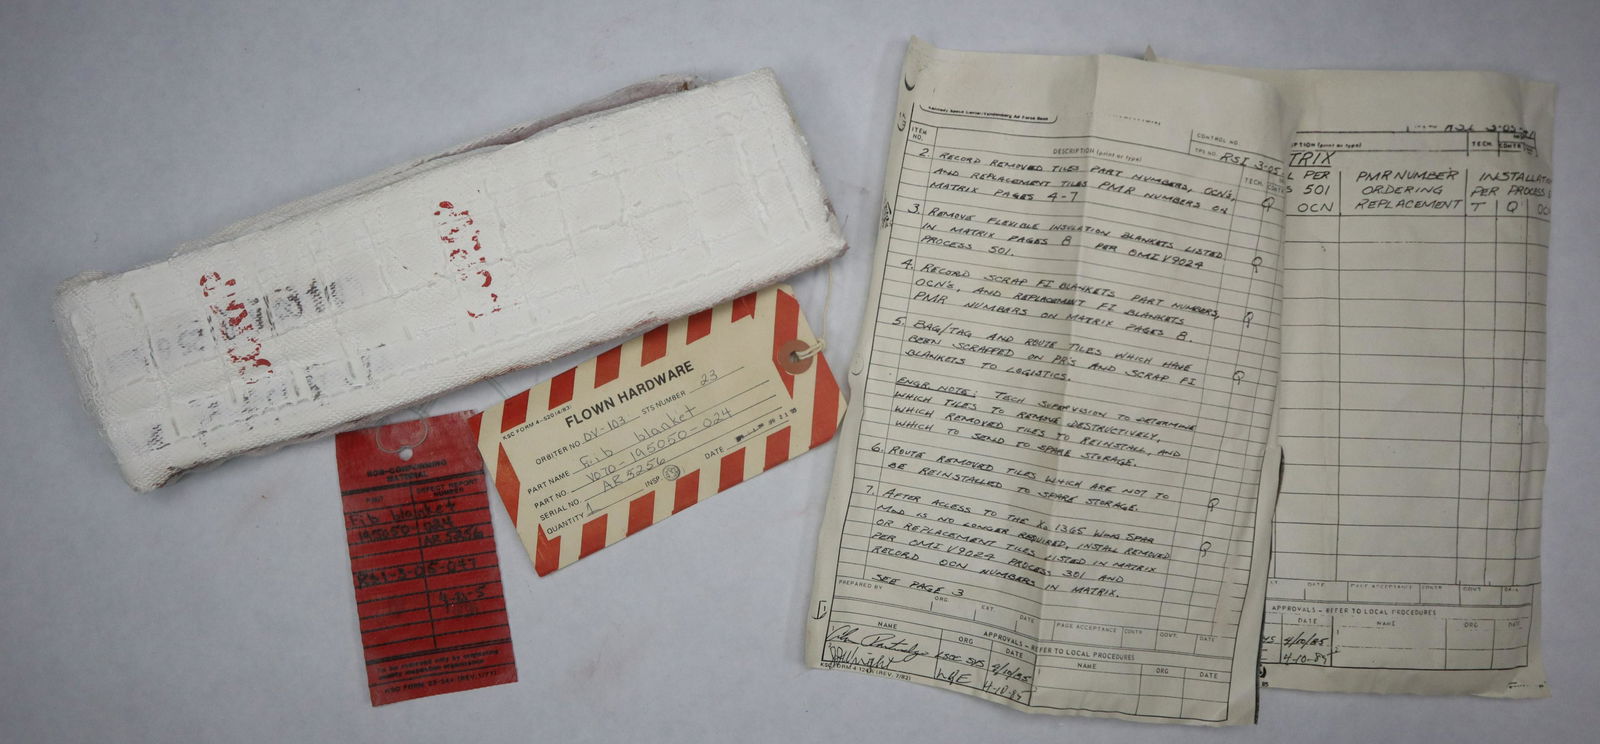 NON-CONFORMING
MATERIAL
PART
DEFECT REPORT
NUMBER
Fib blanket
195050-024
AR5256
4-21-5
To be removed only by originating
quality inspection organization
KSC FORM 4-520 (4/83)
FLOWN HARDWARE
ORBITER NO. OV-103 STS NUMBER 23
PART NAME Fib blanket
PART NO. V070-195050-024
SERIAL NO. AR5256
QUANTITY 1 INSP
DATE
Kennedy Space Center/Vandenberg Air Force Base
CONTROL NO.
ITEM
NO.
DESCRIPTION (print or type)
TPS NO. RSI 3-05
TECH. CONTR
2. RECORD REMOVED TILES PART NUMBERS, OCN'S,
AND REPLACEMENT TILES PMR NUMBERS ON
MATRIX PAGES 4-7
Q
3. REMOVE FLEXIBLE INSULATION BLANKETS LISTED
IN MATRIX PAGES 8 PER OMI V9024
PROCESS 501.
Q
4. RECORD SCRAP FI BLANKETS PART NUMBERS,
OCN'S, AND REPLACEMENT FI BLANKETS
PMR NUMBARS ON MATRIX PAGES 8.
Q
5. BAG/TAG AND ROUTE TILES WHICH HAVE
BEEN SCRAPPED ON PR'S AND SCRAP FI
BLANKETS TO LOGISTICS.
Q
ENGR NOTE: TECH SUPERVISION TO DETERMINE
WHICH TILES TO REMOVE DESTRUCTIVELY,
WHICH REMOVED TILES TO REINSTALL, AND
WHICH TO SEND TO SPARE STORAGE.
6. ROUTE REMOVED TILES WHICH ARE NOT TO
BE REINSTALLED TO SPARE STORAGE.
Q
7. AFTER ACCESS TO THE Xo 1365 WING SPAR
MOD IS NO LONGER REQUIRED, INSTALL REMOVED
OR REPLACEMENT TILES LISTED IN MATRIX
PER OMI V9024 PROCESS 301 AND
RECORD OCN NUMBERS IN MATRIX.
Q
SEE PAGE 3
PREPARED BY ORG. EXT. DATE PAGE ACCEPTANCE CONTR GOVT. DATE
APPROVALS - REFER TO LOCAL PROCEDURES
NAME ORG DATE NAME ORG DATE
4/10/85
4-10-85
KSC FORM 4-124A (REV. 7/82)
RSI 3-05
PTION (print or type)
TECH. CONTR
TRIX
L PER
501
OCN
PMR NUMBER
ORDERING
REPLACEMENT
INSTALLAT
PER PROCESS
T Q OC
DATE PAGE ACCEPTANCE CONTR GOVT DATE
APPROVALS - REFER TO LOCAL PROCEDURES
NAME ORG DATE
4/10/85
4-10-85